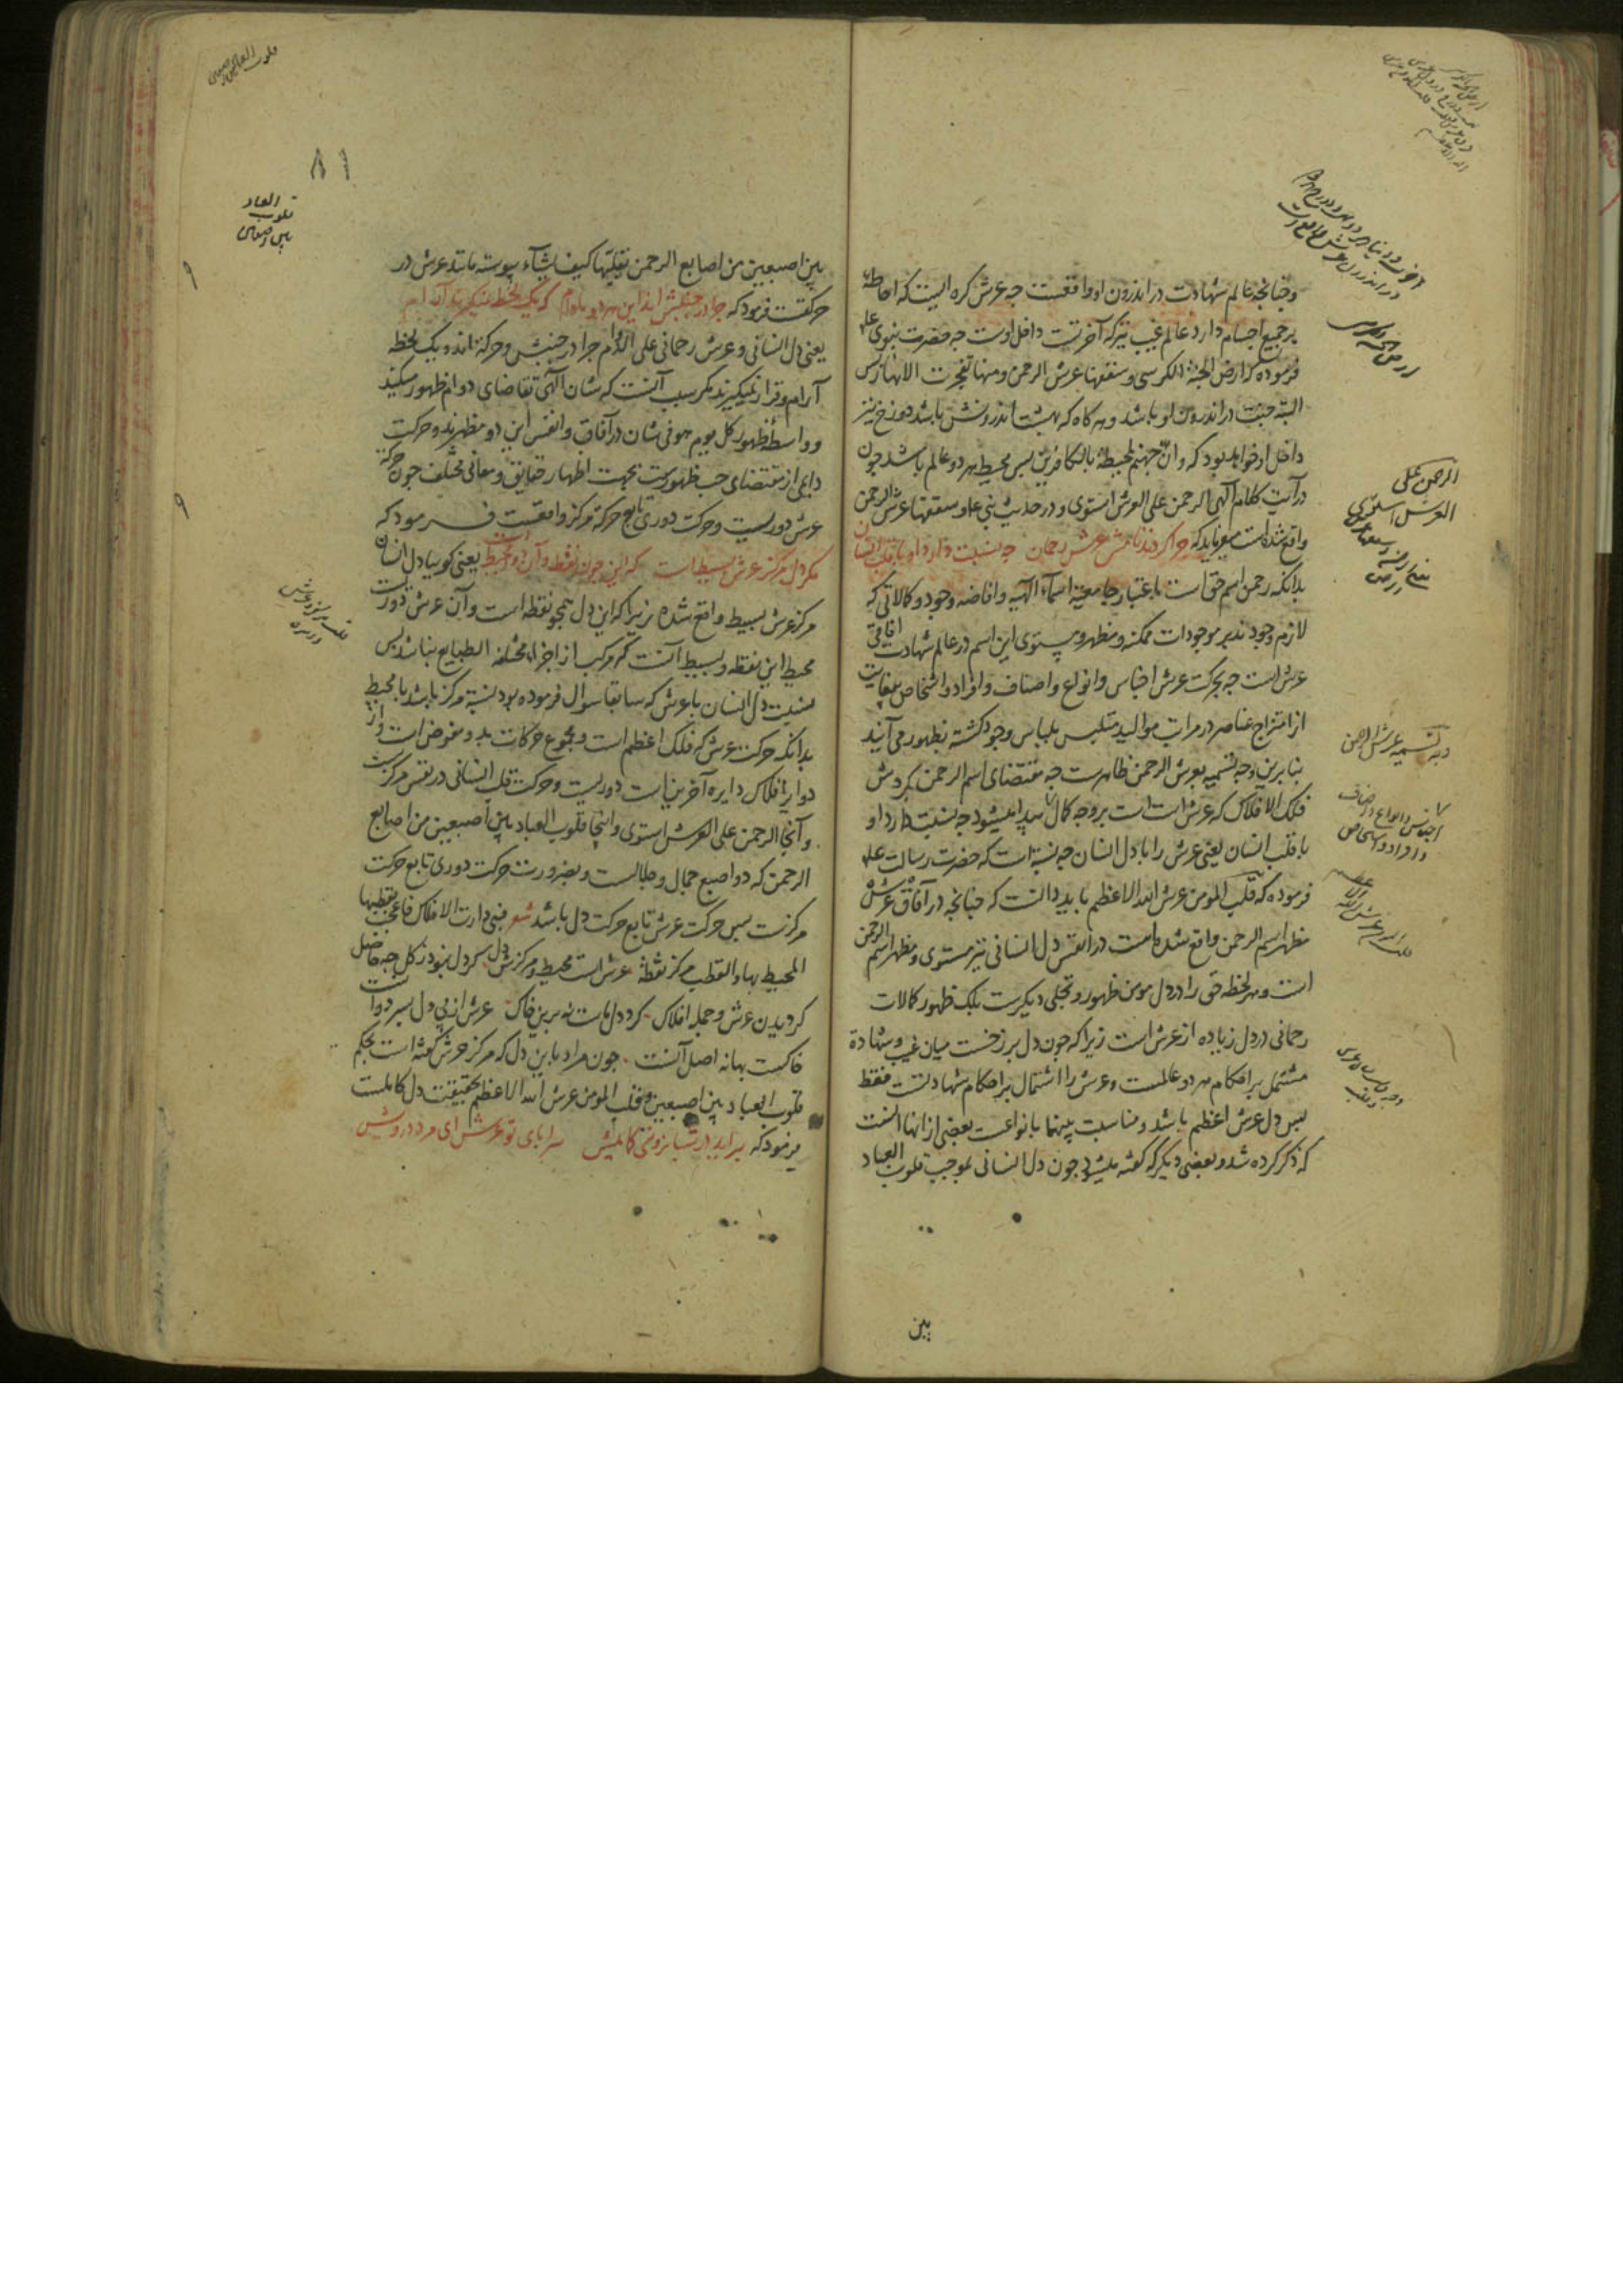 و چنانچه عالم شهادت در اندرون او واقعست چه عرش کره ایست که احاطه
بر جمیع اجسام دارد عالم غیب نیز که آخرتست داخل اوست چه حضرت نبوی علم
فرموده که ارض الجنة الکرسی و سقفها عرش الرحمن و منها تفجرت الانهار پس
البته جنت در اندرون او باشد و هر کاه که بهشت اندرونش باشد دوزخ نیز
داخل او خواهد بود که و ان جهنم لمحیطة بالکافرین پس محیط هر دو عالم باشد چون
در آیت کلام آلهی الرحمن علی العرش استوی و در حدیث نبی علم و سقفها عرش الرحمن
واقع شده است میفرماید که چرا کردند نامش عرش رحمان چه نسبت دارد او با قلب انسان
بدانکه رحمن اسم حق است باعتبار جامعیة اسماء الهیه و افاضه وجود و کمالاتی که
لازم وجودند بر موجودات ممکنه و مظهر و مستوی این اسم در عالم شهادت آفاقی
عرش است چه بحرکت عرش اجناس و انواع و اصناف و افراد و اشخاص بیغایت
از امتزاج عناصر در مراتب موالید متلبس بلباس وجود کشته بظهور می آیند
بنا برین وجه تسمیه بعرش الرحمن ظاهرست چه مقتضای اسم الرحمن بکردش
فلک الافلاک که عرش است بر وجه کمال پیدا میشود چه نسبت دارد او
با قلب انسان یعنی عرش را با دل انسان چه نسبة است که حضرت رسالت علم
فرموده که قلب المومن عرش الله الاعظم باید دانست که چنانچه در آفاق عرش
مظهر اسم الرحمن واقع شده است در انفس دل انسانی نیز مستوی و مظهر اسم الرحمن
است و هر لحظه حق را در دل مومن ظهور و تجلی دیکرست بلک ظهور کمالات
رحمانی در دل زیاده از عرش است زیرا که چون دل برزخست میان غیب و شهادة
مشتمل بر احکام هر دو عالمست و عرش را اشتمال بر احکام شهادتست فقط
پس دل عرش اعظم باشد و مناسبت بینهما بانواعست بعضی از انها انست
که ذکر کرده شد و بعضی دیکر که کفته میشود چون دل انسانی بموجب قلوب العباد
بین
الرحمن علی
العرش استوی
وجه تسمیه عرش الرحمن
اجناس و انواع و اصناف
و افراد و اشخاص
۸۱
قلوب العباد
بین اصبعین
بین اصبعین من اصابع الرحمن یقلبها کیف یشاء پیوسته مانند عرش در
حرکتست فرمود که چرا در جنبش اند این هر دو مادام که یک لحظه نمیکیرند آرام
یعنی دل انسانی و عرش رحمانی علی الدوام چرا در جنبش و حرکة اند و یک لحظه
آرام و قرار نمیکیرند مکر سبب آنست که شان آلهی تقاضای دوام ظهور میکند
و واسطه ظهور کل یوم هو فی شان در آفاق و انفس این دو مظهرند و حرکت
دایمی از مقتضای حب ظهورست بجهت اظهار حقایق و معانی مختلف چون حرکة
عرش دوریست و حرکت دوری تابع حرکة مرکز واقعست فرمود که
مکر دل مرکز عرش بسیط است که این چون نقطه و آن دور محیط است یعنی کویا دل انسان
مرکز عرش بسیط واقع شده زیرا که این دل همچو نقطه است و آن عرش دورست
محیط این نقطه و بسیط آنست که مرکب از اجزاء مختلفه الطبایع نباشد پس
نسبت دل انسان با عرش که سابقا سوال فرموده بود نسبة مرکز باشد با محیط
بدانکه حرکت عرش که فلک اعظم است و مجموع حرکات بدو مفوض است و از
دوایر افلاک دایره آخرین است دوریست و حرکت قلب انسانی در نفس مرکزست
و آنجا الرحمن علی العرش استوی و اینجا قلوب العباد بین اصبعین من اصابع
الرحمن که دو اصبع جمال و جلالست و بضرورت حرکت دوری تابع حرکت
مرکزست پس حرکت عرش تابع حرکت دل باشد شعر فبی دارت الافلاک فاعجب لقطبها
المحیط بها و القطب مرکز نقطة عرش است محیط و مرکزش دل کر دل نبود ز کل چه حاصل
کردیدن عرش و جمله افلاک کرد دل ماست نه برین خاک عرش از پی دل بسر دوانست
خاکست بهانه اصل آنست چون مراد باین دل که مرکز عرش کفته است بحکم
قلوب العباد بین اصبعین و قلب المومن عرش الله الاعظم بحقیقت دل کاملست
فرمود که برآید در شبانروزی کمابیش سراپای تو عرش ای مرد درویش